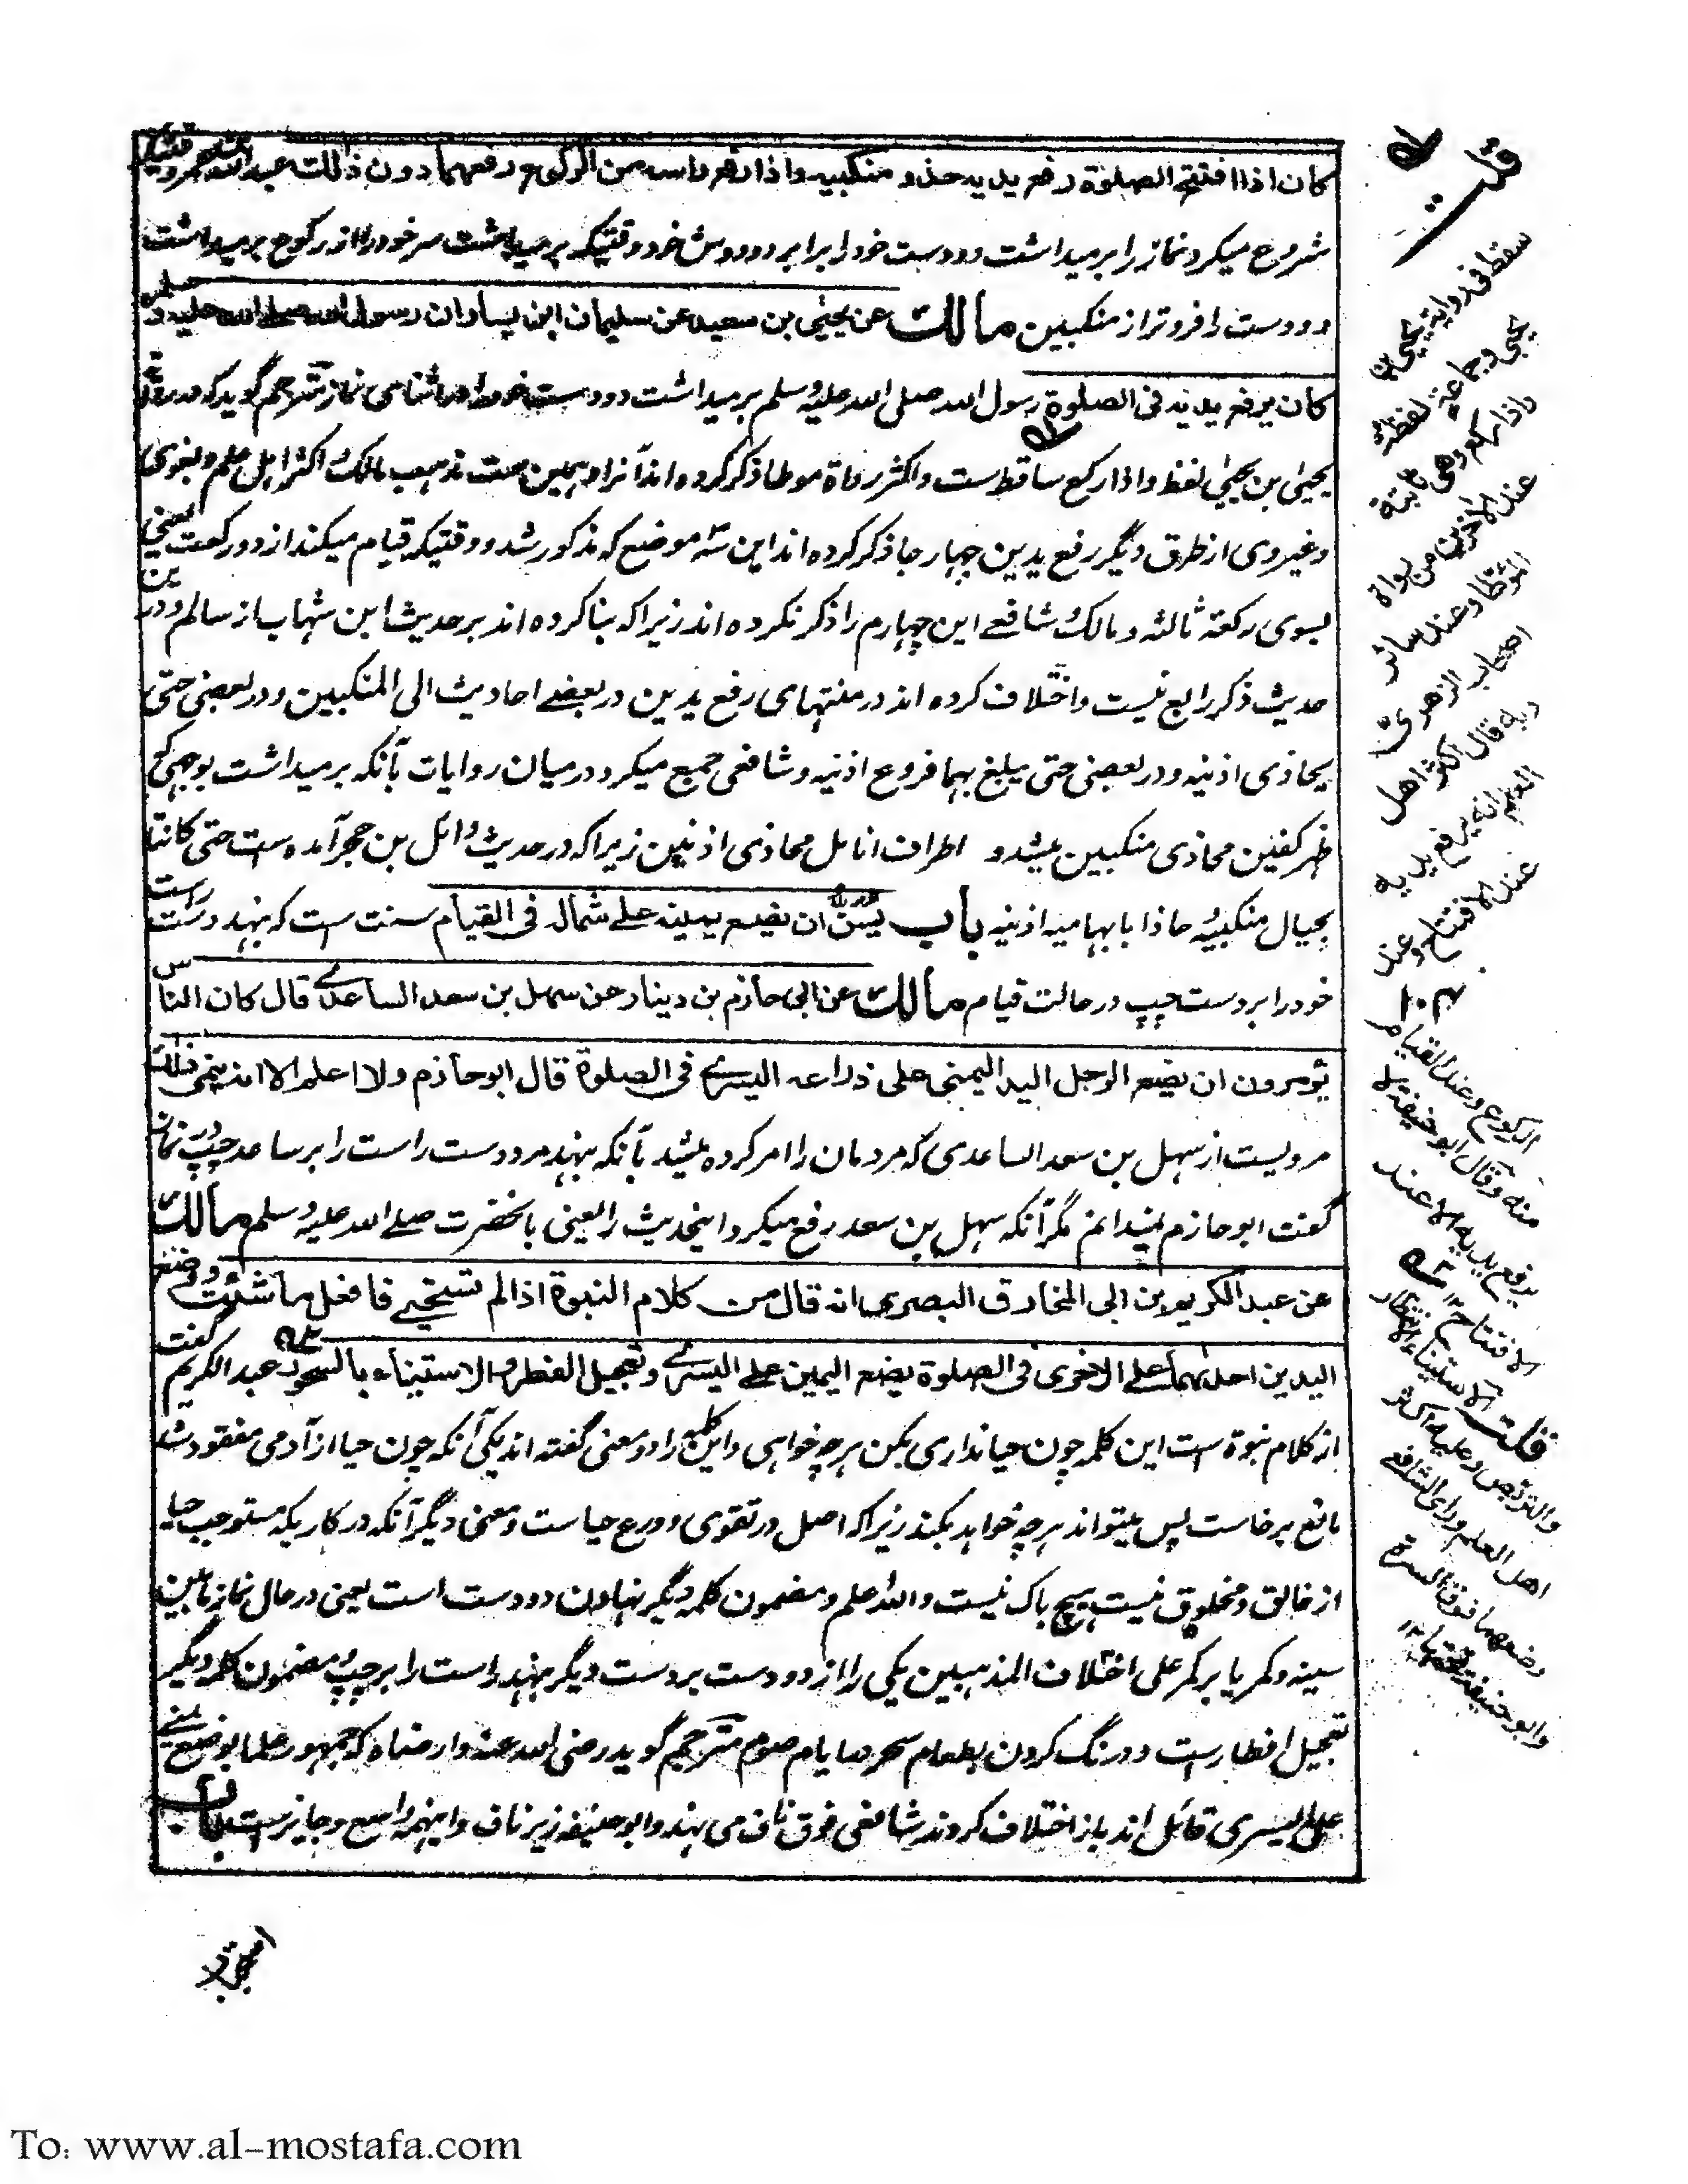 كان اذا افتتح الصلوة رفع يديه حذو منكبيه واذا رفع راسه من الركوع رفعهما دون ذلك عبد الله
شروع میکرد نماز را برمیداشت دو دست خود را برابر دو دوش خود وقتیکه برمیداشت سر خود را از رکوع برمیداشت
دو دست را فروتر از منکبین مالك عن يحيى بن سعيد عن سليمان ابن يسار ان رسول الله صلى الله عليه و
كان يرفع يديه فى الصلوة رسول الله صلی الله علیه وسلم برمیداشت دو دست خود در اثنای نماز مترجم گوید که در
یحیی بن یحیی لفظ واذا رکع ساقط ست واکثر رواة موطا ذکر کرده اند آنرا وهمین ست مذهب مالک واکثر اهل علم وبغوی
وغیر وی از طرق دیگر رفع یدین چهار جا ذکر کرده اند این سه موضع که مذکور شد ووقتیکه قیام میکند از دو رکعت یعنی
بسوی رکعة ثالثه ومالک شافعے این چهارم را ذکر نکرده اند زیرا که بنا کرده اند بر حدیث ابن شهاب از سالم ودرین
حدیث ذکر رابع نیست واختلاف کرده اند در منتهای رفع یدین در بعضے احادیث الی المنکبین ودر بعضی حتی
یحاذی اذنیه ودر بعضی حتی یبلغ بهما فروع اذنیه وشافعی جمع میکرد در میان روایات بآنکه برمیداشت بوجهی که
ظهر کفین محاذی منکبین میشد و اطراف انامل محاذی اذنین زیرا که در حدیث وائل بن حجر آمده ست حتی کانتا
بحیال منکبیه وحاذا بابهامیه اذنیه باب يسن ان يضع يمينه على شماله فى القيام سنت ست که بنهد دست راست
خود را بر دست چپ در حالت قیام مالك عن ابى حازم بن دينار عن سهل بن سعد الساعدى قال كان الناس
يؤمرون ان يضع الرجل اليد اليمنى على ذراعه اليسرى فى الصلوة قال ابو حازم ولا اعلم الا انه ينمى ذلك
مرویست از سهل بن سعد الساعدی که مردمان را امر کرده میشد بآنکه بنهد مرد دست راست را بر ساعد چپ در نماز
گفت ابو حازم نمیدانم مگر آنکه سهل بن سعد رفع میکرد اینحدیث را یعنی بآنحضرت صلے الله علیه وسلم مالك
عن عبد الكريم بن ابى المخارق البصرى انه قال من كلام النبوة اذا لم تستحيى فافعل ما شئت ووضع
اليدين احدهما على الاخرى فى الصلوة يضع اليمين على اليسرى وتعجيل الفطر والاستيناء بالسحور گفت عبد الکریم
از کلام نبوة ست این کلمه چون حیا نداری بکن هر چه خواهی واین کلمه را دو معنی گفته اند یکی آنکه چون حیا از آدمی مفقود شد
مانع برخاست پس میتواند هر چه خواهد بکند زیرا که اصل در تقوی وورع حیا ست ومعنی دیگر آنکه در کاریکه مستوجب حیا
از خالق ومخلوق نیست هیچ باک نیست والله اعلم ومضمون کلمه دیگر نهادن دو دست است یعنی در حال نماز مابین
سینه وکمر یا بر کمر علی اختلاف المذهبین یکی را از دو دست بر دست دیگر بنهد راست را بر چپ ومضمون کلمه دیگر
تعجیل افطار ست ودرنگ کردن بطعام سحر در ایام صوم مترجم گوید رضی الله عنه وارضاه که جمهور علما بوضع یمنے
علی الیسری قائل اند باز اختلاف کردند شافعی فوق ناف می نهد وابو حنیفه زیر ناف واینهمه واسع وجایز ست باب
قلت
سقط فى رواية يحيى بن
يحيى وجماعة لفظة
واذا ركع وهى ثابتة
عند الاخرين من رواة
الموطا وعند سائر
اصحاب الزهرى
وبه قال اكثر اهل
العلم انه يرفع يديه
عند الافتتاح وعند
الركوع وعند القيام
منه وقال ابو حنيفة لا
يرفع يديه الا عند
الافتتاح ١٢
قلت الاستيناء الانتظار
والتربص وعليه اكثر
اهل العلم وراى الشافعى
وضعهما فوق السرة
وابو حنيفة تحتها ١٢
To: www.al-mostafa.com